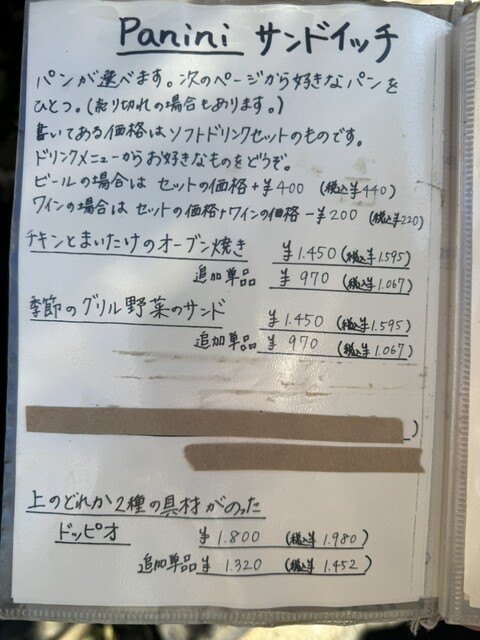 Panini サンドイッチ
パンが選べます。次のページから好きなパンを
ひとつ。(売り切れの場合もあります。)
書いてある価格はソフトドリンクセットのものです。
ドリンクメニューからお好きなものをどうぞ。
ビールの場合は セットの価格+¥400 (税込¥440)
ワインの場合は セットの価格+ワインの価格-¥200 (税込¥220)
チキンとまいたけのオーブン焼き ¥1.450(税込¥1.595)
追加単品 ¥ 970 (税込¥1.067)
季節のグリル野菜のサンド ¥1.450 (税込¥1.595)
追加単品 ¥ 970 (税込¥1.067)
)
上のどれか2種の具材がのった
ドッピオ ¥1.800 (税込¥1.980)
追加単品 ¥ 1.320 (税込¥1.452)